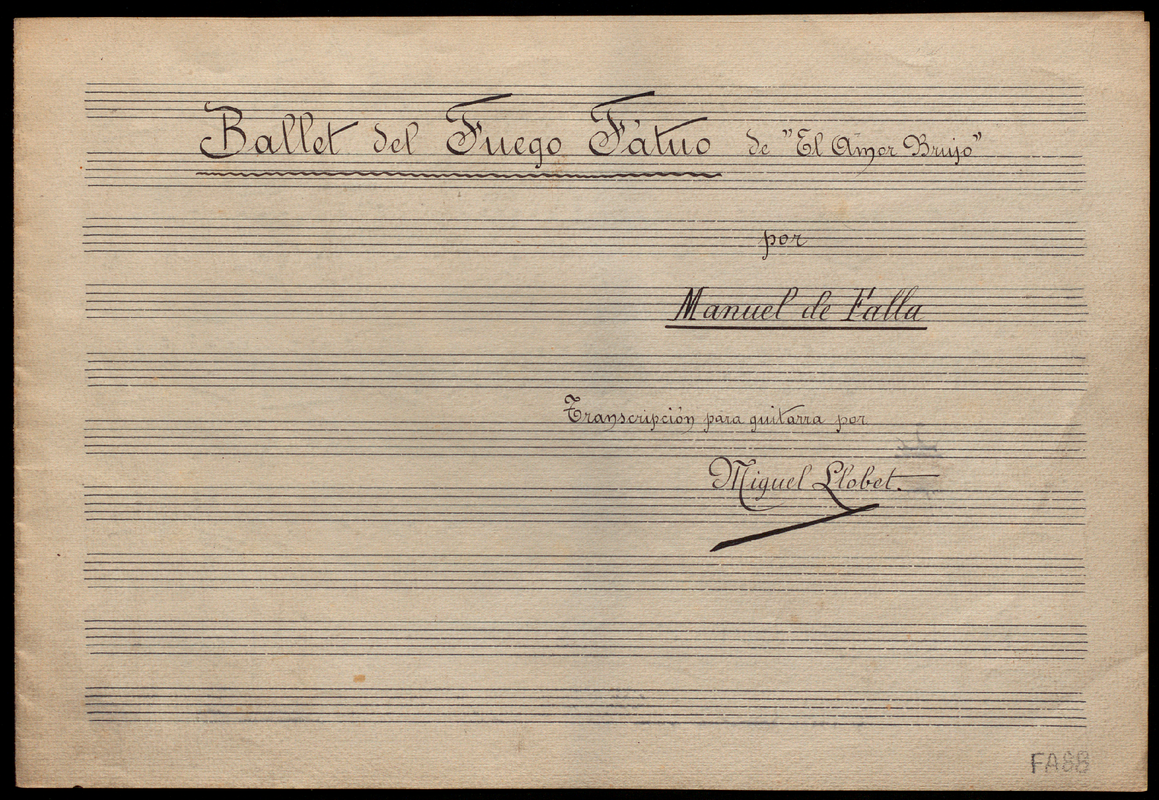 Ballet del Fuego Fátuo de "El Amor Brujo"
por
Manuel de Falla
Transcripción para guitarra por
Miguel Llobet.
FA88